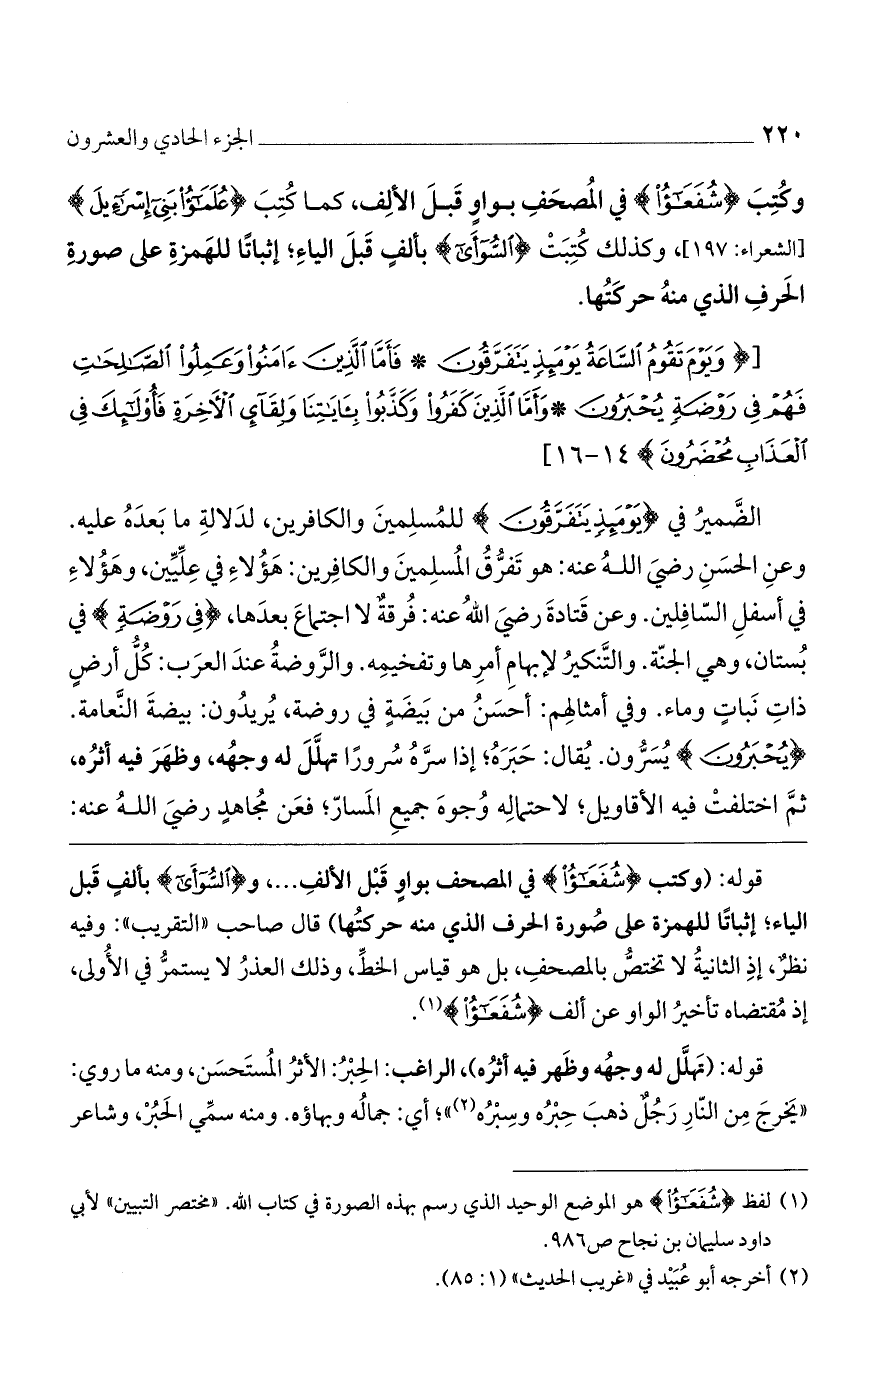 ٢٢٠ الجزء الحادي والعشرون
وكُتِبَ ﴿شُفَعَٰٓؤُاْ﴾ في المُصحَفِ بواوٍ قَبلَ الألِف، كما كُتِبَ ﴿عُلَمَٰٓؤُاْ بَنِيٓ إِسۡرَٰٓءِيلَ﴾
[الشعراء: ١٩٧]، وكذلك كُتِبَتْ ﴿ٱلسُّوٓأَىٰٓ﴾ بألفٍ قَبلَ الياءِ؛ إثباتًا للهَمزةِ على صورةِ
الحَرفِ الذي منهُ حركتُها.
[﴿وَيَوۡمَ تَقُومُ ٱلسَّاعَةُ يَوۡمَئِذٖ يَتَفَرَّقُونَ * فَأَمَّا ٱلَّذِينَ ءَامَنُواْ وَعَمِلُواْ ٱلصَّٰلِحَٰتِ
فَهُمۡ فِي رَوۡضَةٖ يُحۡبَرُونَ * وَأَمَّا ٱلَّذِينَ كَفَرُواْ وَكَذَّبُواْ بِـَٔايَٰتِنَا وَلِقَآيِٕ ٱلۡأٓخِرَةِ فَأُوْلَٰٓئِكَ فِي
ٱلۡعَذَابِ مُحۡضَرُونَ﴾ ١٤-١٦]
الضَّميرُ في ﴿يَوۡمَئِذٖ يَتَفَرَّقُونَ﴾ للمُسلِمينَ والكافرين، لدَلالةِ ما بَعدَهُ عليه.
وعنِ الحسَنِ رضيَ اللهُ عنه: هو تَفرُّقُ المُسلِمينَ والكافِرين: هَؤُلاءِ في عِلِّيِّين، وهَؤُلاءِ
في أسفلِ السّافِلين. وعن قَتادةَ رضيَ اللهُ عنه: فُرقةٌ لا اجتماعَ بعدَها، ﴿فِي رَوۡضَةٖ﴾ في
بُستان، وهي الجنّة. والتَّنكيرُ لإبهامِ أمرِها وتفخيمِه. والرَّوضةُ عندَ العرَب: كُلُّ أرضٍ
ذاتِ نَباتٍ وماء. وفي أمثالِهم: أحسَنُ من بَيضَةٍ في روضة، يُريدُون: بيضةَ النَّعامة.
﴿يُحۡبَرُونَ﴾ يُسَرُّون. يُقال: حَبَرَهُ؛ إذا سرَّهُ سُرورًا تهلَّلَ له وجهُه، وظهَرَ فيه أثرُه،
ثمَّ اختلفتْ فيه الأقاويل؛ لاحتمالِه وُجوهَ جميعِ المَسارّ؛ فعَن مُجاهدٍ رضيَ اللهُ عنه:
قوله: (وكتب ﴿شُفَعَٰٓؤُاْ﴾ في المصحف بواوٍ قَبْل الألفِ...، و﴿ٱلسُّوٓأَىٰٓ﴾ بألفٍ قَبل
الياء؛ إثباتًا للهمزة على صُورة الحرف الذي منه حركتُها) قال صاحب «التقريب»: وفيه
نظرٌ، إذِ الثانيةُ لا تختصُّ بالمصحفِ، بل هو قياس الخطِّ، وذلك العذرُ لا يستمرُّ في الأُولى،
إذ مُقتضاه تأخيرُ الواو عن ألف ﴿شُفَعَٰٓؤُاْ﴾(١).
قوله: (تهلَّل له وجهُه وظَهر فيه أثرُه)، الراغب: الحِبْرُ: الأثرُ المُستَحسَن، ومنه ما روي:
«يَخرجَ مِن النّارِ رَجُلٌ ذهبَ حِبْرُه وسِبْرُه(٢)»؛ أي: جمالُه وبهاؤه. ومنه سمِّي الحَبْرُ، وشاعر
(١) لفظ ﴿شُفَعَٰٓؤُاْ﴾ هو الموضع الوحيد الذي رسم بهذه الصورة في كتاب الله. «مختصر التبيين» لأبي
داود سليمان بن نجاح ص٩٨٦.
(٢) أخرجه أبو عُبَيْد في «غريب الحديث» (١: ٨٥).